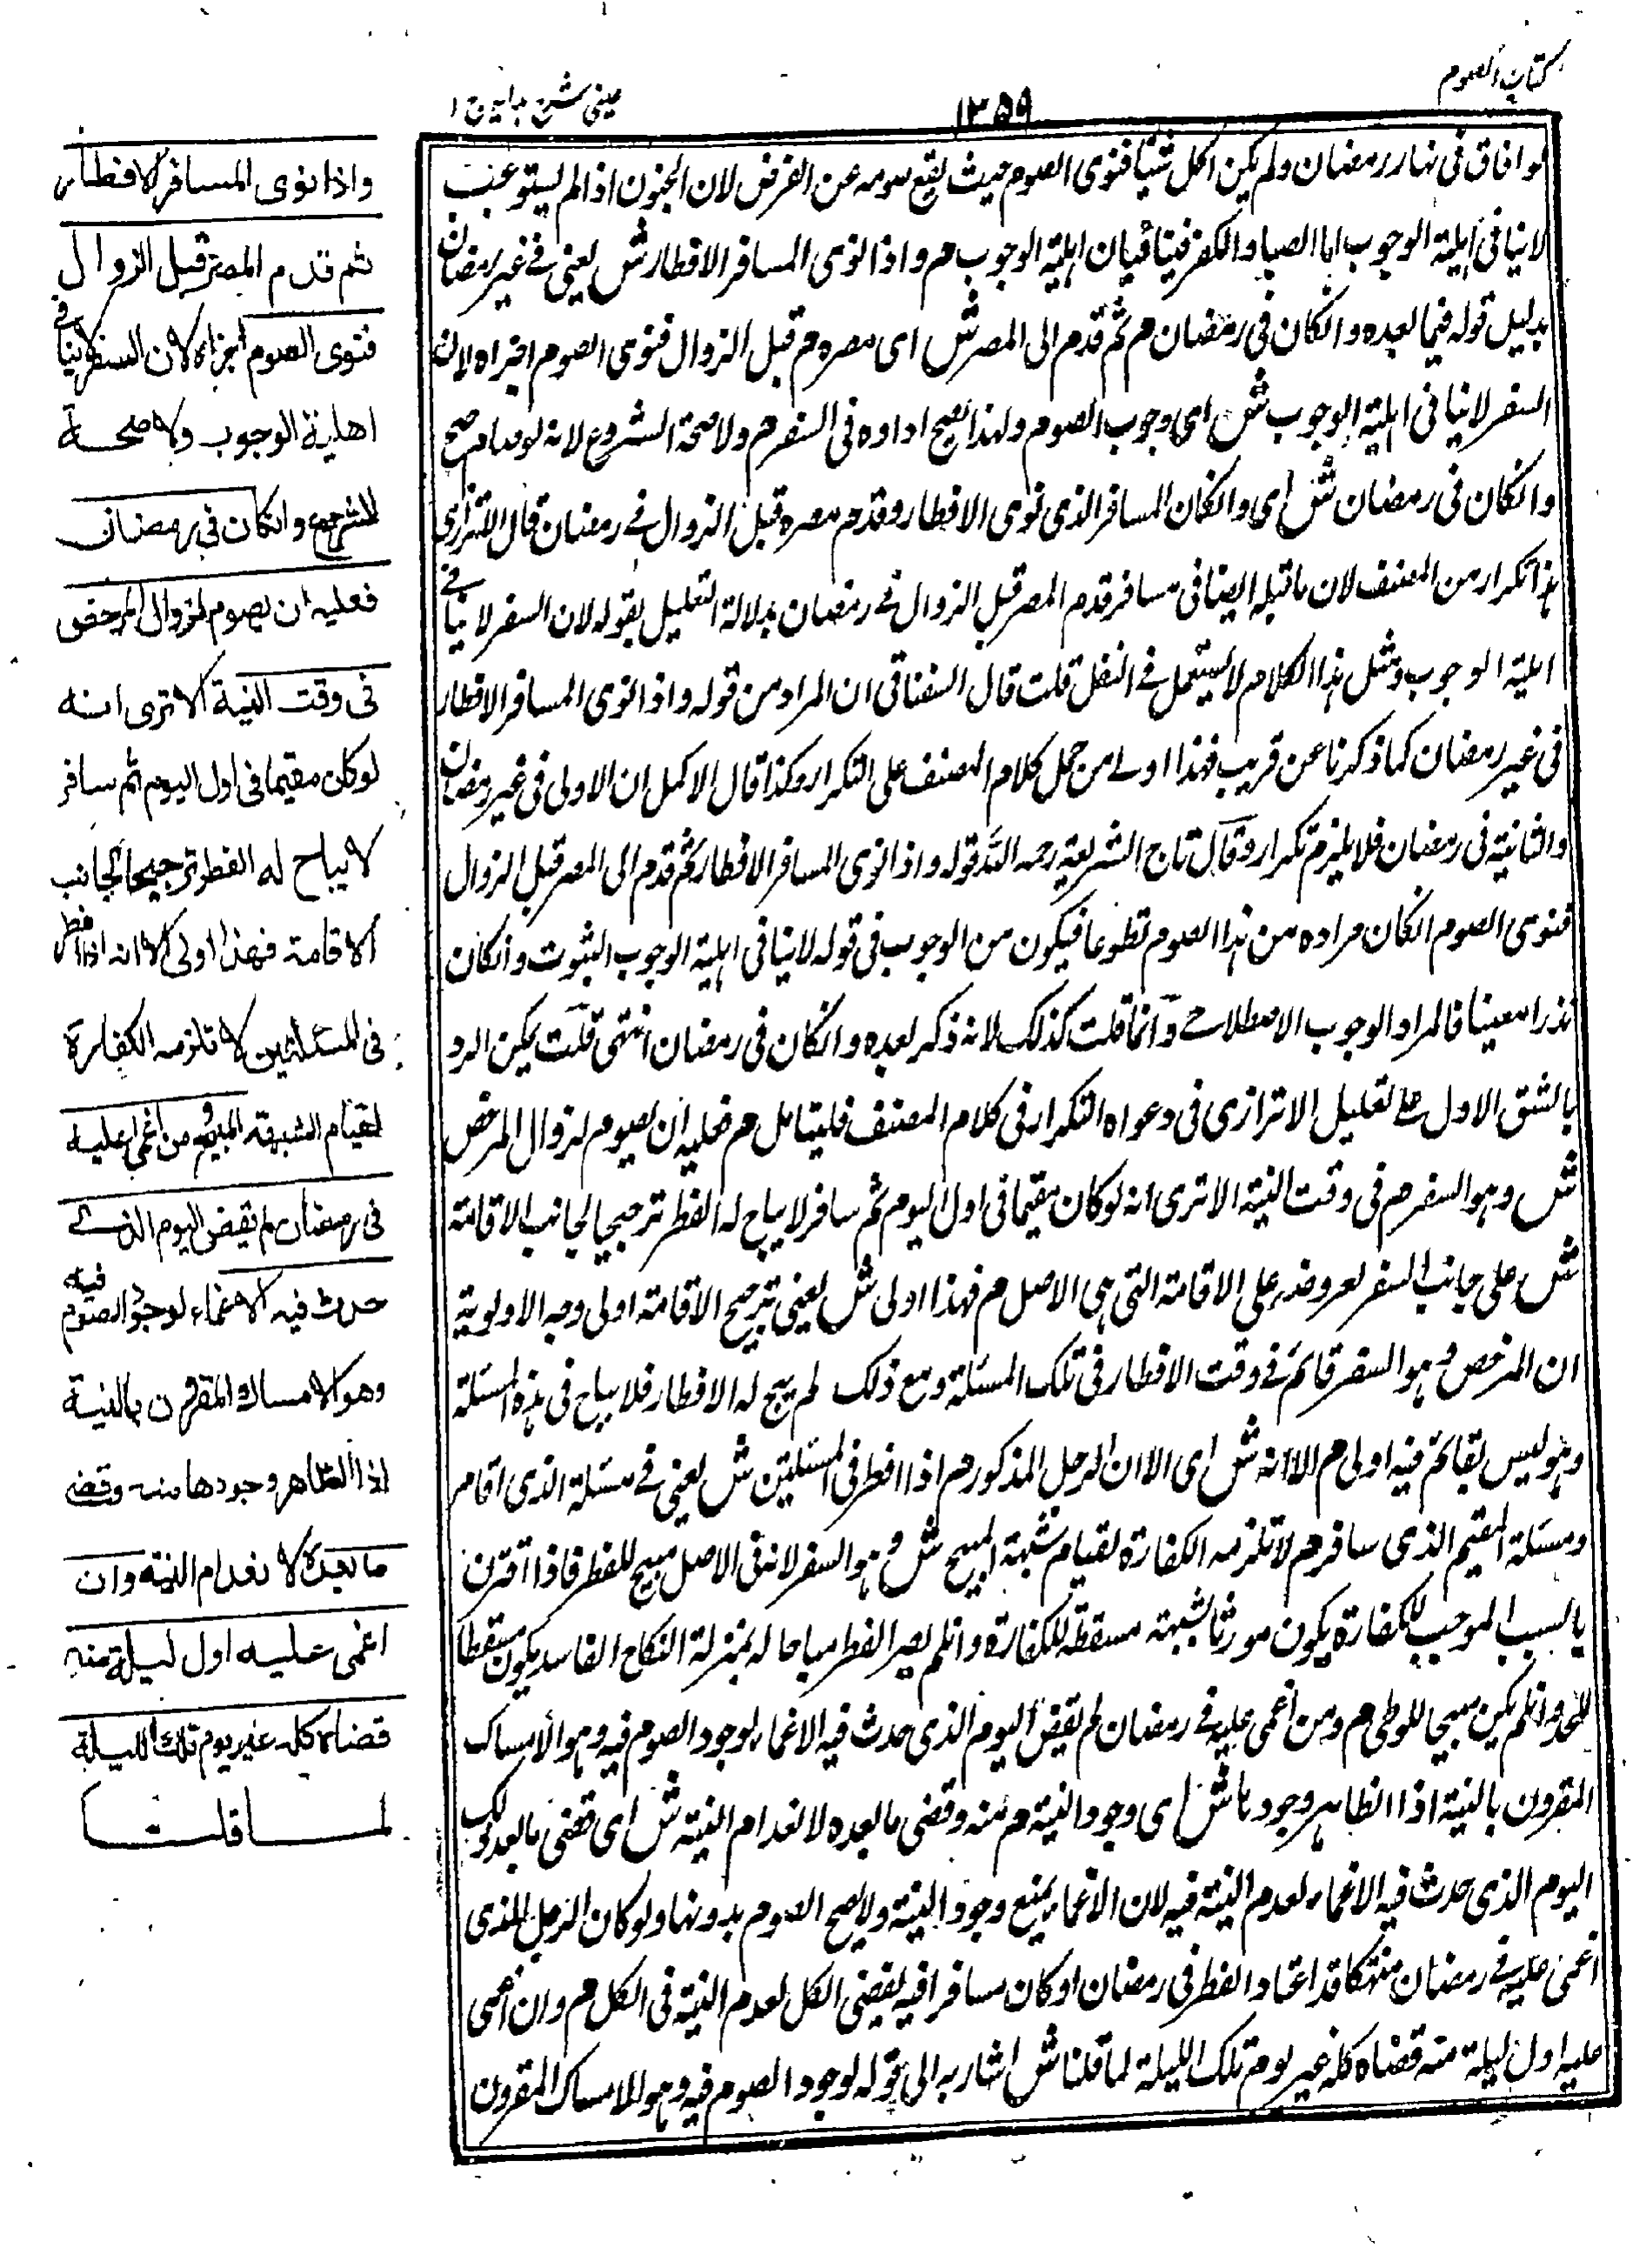 كتاب الصوم
١٣٥٩
عينى شرح هدايه ج ١
لو افاق فى نهار رمضان ولم يكن اكل شيئا فنوى الصوم حيث يقع صومه عن الفرض لان الجنون اذا لم يستوعب
لا ينافى اهلية الوجوب اما الصبا والكفر فينافيان اهلية الوجوب م واذا نوى المسافر الافطار ش يعنى فى غير رمضان
بدليل قوله فيما بعده وانكان فى رمضان م ثم قدم الى المصر ش اى مصره م قبل الزوال فنوى الصوم اجزاه لان
السفر لا ينافى اهلية الوجوب ش اى وجوب الصوم ولهذا يصح اداوه فى السفر م ولا صحة الشروع لانه لو صام صح
وانكان فى رمضان ش اى وانكان المسافر الذى نوى الافطار وقدم مصره قبل الزوال فى رمضان قال الاترازى
هذا تكرار من المصنف لان ما قبله ايضا فى مسافر قدم المصر قبل الزوال فى رمضان بدلالة التعليل بقوله لان السفر لا ينافى
اهلية الوجوب ومثل هذا الكلام لا يستعمل فى النفل قلت قال السغناقى ان المراد من قوله واذا نوى المسافر الافطار
فى غير رمضان كما ذكرنا عن قريب فهذا اولى من حمل كلام المصنف على التكرار وكذا قال الاكمل ان الاولى فى غير رمضان
والثانية فى رمضان فلا يلزم تكرار وقال تاج الشريعة رحمه الله قوله واذا نوى المسافر الافطار ثم قدم الى المصر قبل الزوال
فنوى الصوم انكان مراده من هذا الصوم تطوعا فيكون من الوجوب فى قوله لا ينافى اهلية الوجوب الثبوت وانكان
نذرا معينا فالمراد الوجوب الاصطلاحى وانما قلت كذلك لانه ذكر بعده وانكان فى رمضان انتهى قلت يمكن الرد
بالشق الاول على تعليل الاترازى فى دعواه التكرار فى كلام المصنف فليتامل م فعليه ان يصوم لزوال المرخص
ش وهو السفر م فى وقت النية الا ترى انه لو كان مقيما فى اول اليوم ثم سافر لا يباح له الفطر ترجيحا لجانب الاقامة
ش على جانب السفر لعروضه على الاقامة التى هى الاصل م فهذا اولى ش يعنى ترجيح الاقامة اولى وجه الاولوية
ان المرخص وهو السفر قائم فى وقت الافطار فى تلك المسئلة ومع ذلك لم يبح له الافطار فلا يباح فى هذه المسئلة
وهو ليس بقائم فيه اولى م الا انه ش اى الا ان الرجل المذكور م اذا افطر فى المسئلتين ش يعنى فى مسئلة الذى اقام
ومسئلة المقيم الذى سافر م لا تلزمه الكفارة لقيام شبهة المبيح ش وهو السفر لانه فى الاصل مبيح للفطر فاذا اقترن
بالسبب الموجب للكفارة يكون مورثا شبهة مسقطة للكفارة وانلم يصر الفطر مباحا له بمنزلة النكاح الفاسد يكون مسقطا
للحد وانلم يكن مبيحا للوطى م ومن اغمى عليه فى رمضان لم يقض اليوم الذى حدث فيه الاغماء لوجود الصوم فيه وهو الامساك
المقرون بالنية اذ الظاهر وجودها ش اى وجود النية م منه وقضى ما بعده لانعدام النية ش اى قضى ما بعد ذلك
اليوم الذى حدث فيه الاغماء لعدم النية فيه لان الاغماء يمنع وجود النية ولا يصح الصوم بدونها ولو كان الرجل الذى
اغمى عليه فى رمضان منهتكا قد اعتاد الفطر فى رمضان او كان مسافرا فيه يقضى الكل لعدم النية فى الكل م وان اغمى
عليه اول ليلة منه قضاه كله غير يوم تلك الليلة لما قلنا ش اشار به الى قوله لوجود الصوم فيه وهو الامساك المقرون
واذا نوى المسافر الافطار
ثم قدم المصر قبل الزوال
فنوى الصوم اجزاه لان السفر لا ينافى
اهلية الوجوب ولا صحة
الشروع وانكان فى رمضان
فعليه ان يصوم لزوال المرخص
فى وقت النية الا ترى انه
لو كان مقيما فى اول اليوم ثم سافر
لا يباح له الفطر ترجيحا لجانب
الاقامة فهذا اولى الا انه اذا افطر
فى المسئلتين لا تلزمه الكفارة
لقيام الشبهة المبيح ومن اغمى عليه
فى رمضان لم يقض اليوم الذى
حدث فيه الاغماء لوجود الصوم فيه
وهو الامساك المقرون بالنية
اذ الظاهر وجودها منه وقضى
ما بعده لانعدام النية وان
اغمى عليه اول ليلة منه
قضاه كله غير يوم تلك الليلة
لما قلت